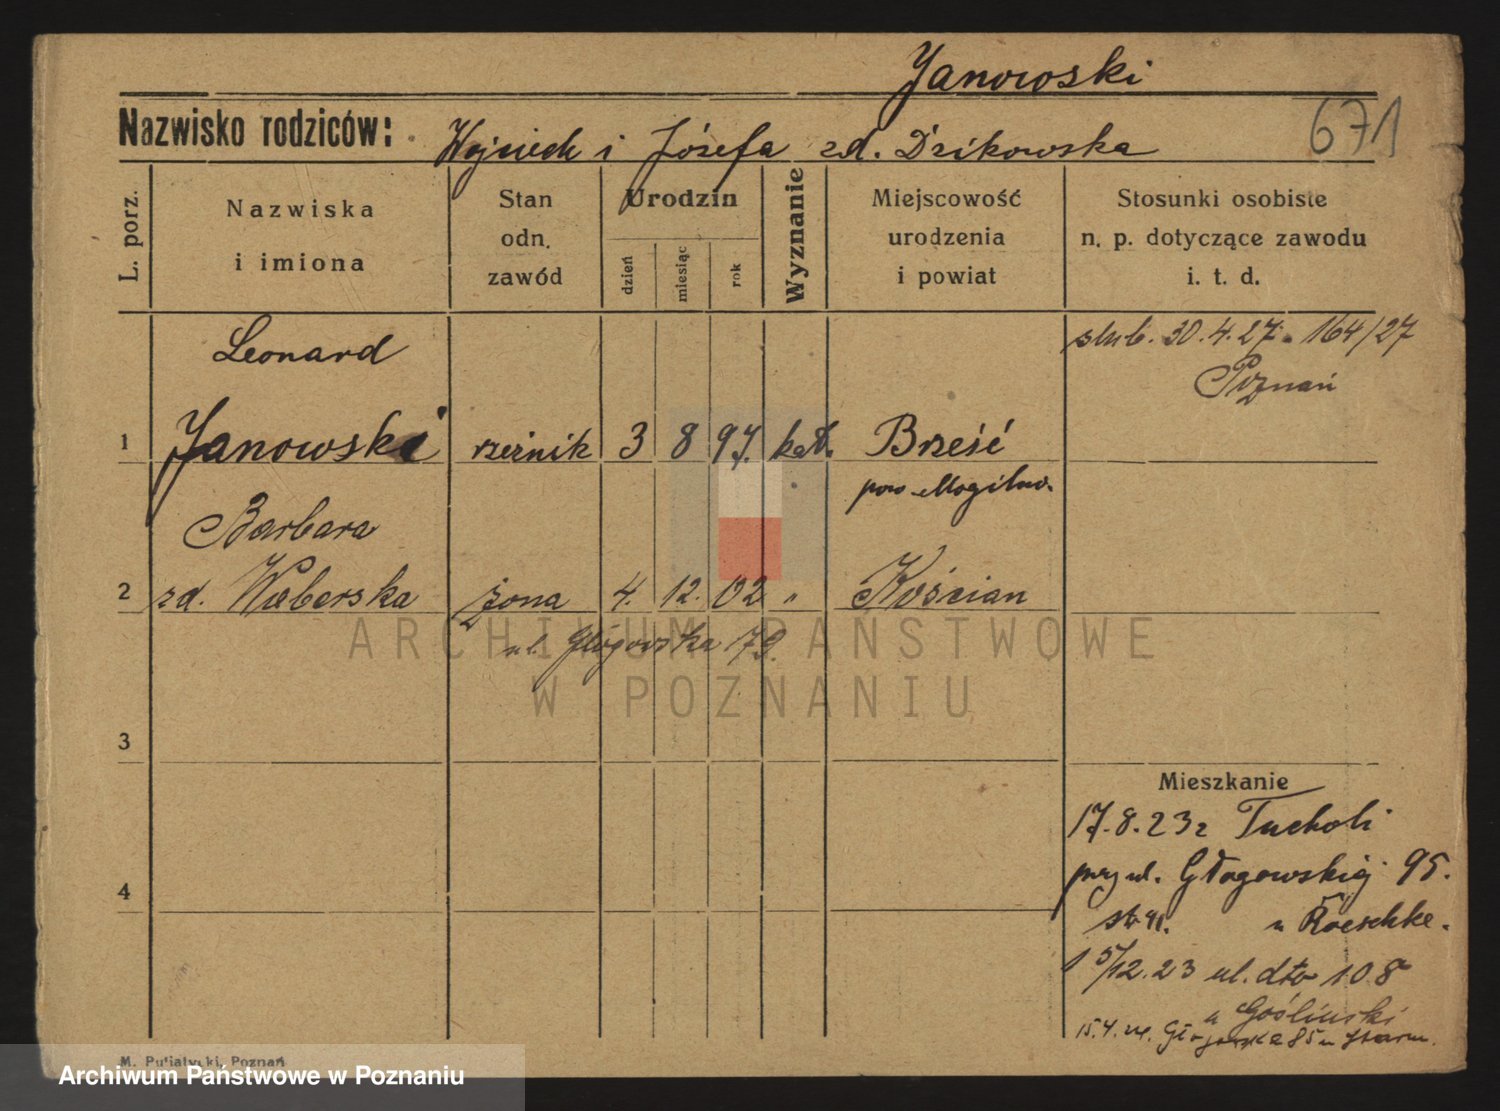 Janowski
671
Nazwisko rodziców: Wojciech i Józefa zd. Dzikowska
L. porz.
Nazwiska i imiona
Stan odn. zawód
Urodzin
dzień
miesiąc
rok
Wyznanie
Miejscowość urodzenia i powiat
Stosunki osobiste n. p. dotyczące zawodu i. t. d.
Leonard
ślub. 30.4.27. 164/27
Poznań
1 Janowski rzeźnik 3 8 97. kat. Brześć
pow. Mogilno.
Barbara
2 zd. Weberska żona 4. 12. 02 " Kościan
ul. Głogowska 179.
ARCHIWUM PAŃSTWOWE
W POZNANIU
3
Mieszkanie
17.8.23 z Tucholi
przy ul. Głogowskiej 95.
u Roeschke.
4
15/12.23 ul. dto 108
u Gośliński
15.4. Głogowska 85 u
M. Putiatycki, Poznań
Archiwum Państwowe w Poznaniu